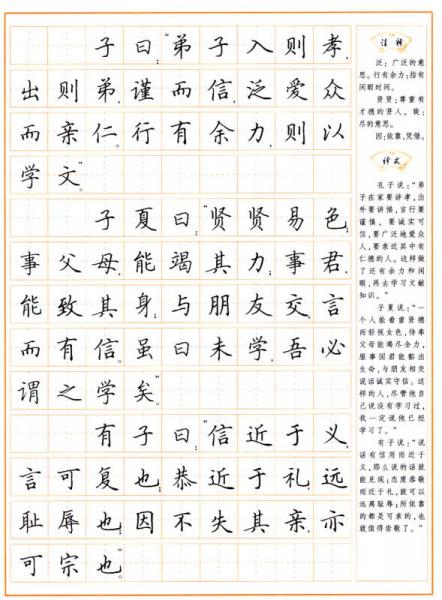 子曰：“弟子入则孝，
出则弟，谨而信，泛爱众，
而亲仁。行有余力，则以
学文”。
子夏曰：“贤贤易色；
事父母，能竭其力；事君，
能致其身；与朋友交，言
而有信。虽曰未学，吾必
谓之学矣”。
有子曰：“信近于义，
言可复也；恭近于礼，远
耻辱也；因不失其亲，亦
可宗也”。
注释
泛：广泛的意
思。行有余力：指有
闲暇时间。
贤贤：尊重有
才德的贤人。致：
尽的意思。
因：依靠，凭借。
译文
孔子说：“弟
子在家要讲孝，出
外要讲悌，言行要
谨慎，要诚实可
信，要广泛地爱众
人，要亲近其中有
仁德的人。这样做
了还有余力和闲
暇，再去学习文献
知识。”
子夏说：“一
个人能看重贤德
而轻视女色，侍奉
父母能竭尽全力，
服事国君能豁出
生命，与朋友相交
说话诚实守信。这
样的人，尽管他自
己说没有学习过，
我一定说他已经
学习了。”
有子说：“说
话有信用而近于
义，那么说的话就
能兑现；态度恭敬
而近于礼，就可以
远离耻辱；所依靠
的都是可亲的，也
就值得崇敬了。”